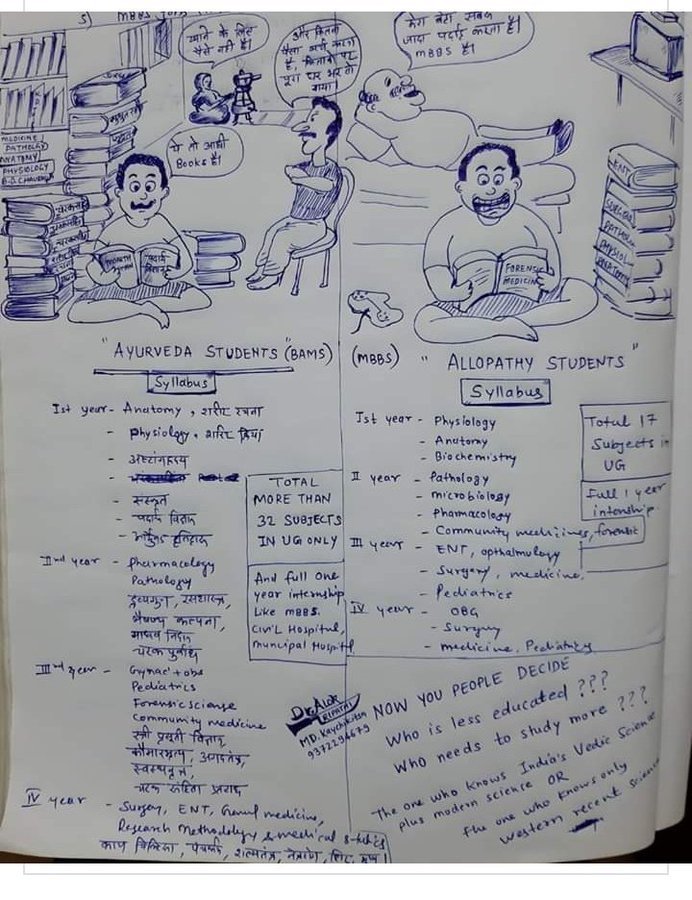 5) MBBS
खाने के लिए
पैसे नही है।
और कितना
पैसा खर्च करता
है, किताबो पर
पूरा घर भर तो
गया।
ये तो आधी
Books है।
मेरा बेटा सबसे
जादा पढाई करता है।
MBBS है।
MEDICINE
PATHOLOGY
ANATOMY
PHYSIOLOGY
B.D. CHAURASIA
ENT
SURGERY
PATHO
PHYSIOL
ANATOMY
FORENSIC
MEDICINE
"AYURVEDA STUDENTS" (BAMS)
Syllabus
Ist year - Anatomy, शारीर रचना
- Physiology, शारिर क्रिया
- अष्टांगहृदय
- संस्कृत
- पदार्थ विज्ञान
- आर्युवेद इतिहास
IInd year - Pharmacology
Pathology
द्रव्यगुण, रसशास्त्र,
भैषज्य कल्पना,
माधव निदान
चरक पुर्वाध
IIIrd year - Gynac + obs
Pediatrics
Forensic science
Community medicine
स्त्री प्रसूती विज्ञान,
कौमारभृत्य, अगदतंत्र,
स्वस्थवृत्त,
चरक संहिता उत्तरार्ध
IV year - Surgery, ENT, General medicine,
Research Methodology & medical statics
काय चिकित्सा, पंचकर्म, शल्यतंत्र, नेत्ररोग, शिर,
TOTAL
MORE THAN
32 SUBJECTS
IN UG ONLY
And full one
year internship
Like MBBS.
Civil Hospital,
Muncipal Hospital
(MBBS) "ALLOPATHY STUDENTS"
Syllabus
Ist year - Physiology
- Anatomy
- Biochemistry
II year - Pathology
- microbiology
- Pharmacology
- Community medicines, forensic
III year - ENT, opthalmology
- Surgery, medicine,
- Pediatrics
IV year - OBG
- Surgery
- medicine, Pediatrics
Total 17
Subjects in
UG
Full 1 year
intenship.
Dr Alok
TRIPATHI
MD. Kaychikitsa
9372294679
NOW YOU PEOPLE DECIDE
Who is less educated ???
Who needs to study more ???
The one who knows India's Vedic Science
plus modern science OR
the one who knows only
western recent science